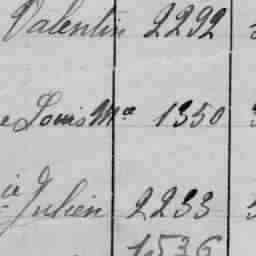 Valentin 2292
e Louis Mce 1350
ie Julien 2233
1536